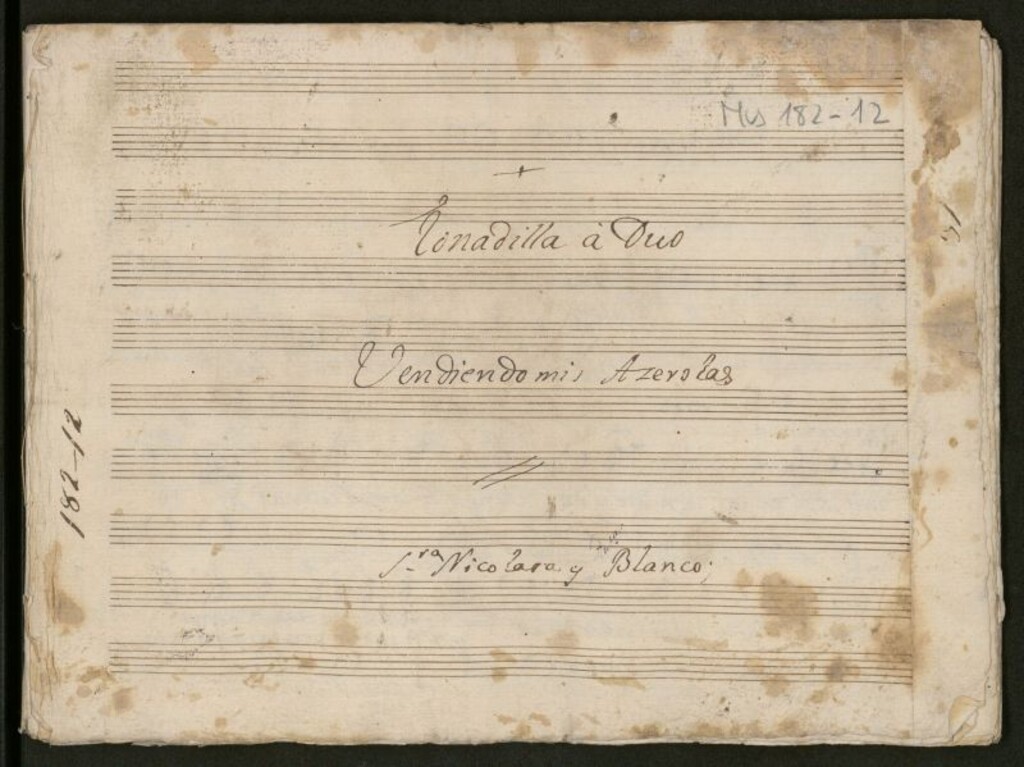 Mus 182-12
+
Tonadilla à Duo
Vendiendo mis Azerolas
S.ra Nicolasa y Blanco;
182-12